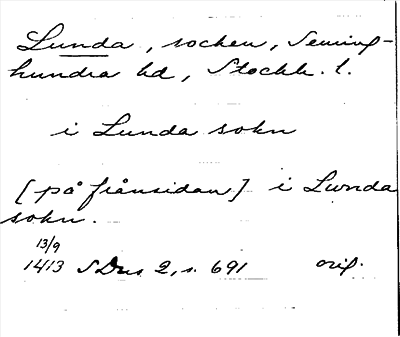 Lunda, socken, Seming-
hundra hd, Stockh. l.
i Lunda sokn
[på frånsidan] i Lwnda
sokn.
13/9
1413 SDns 2, s. 691 orig.